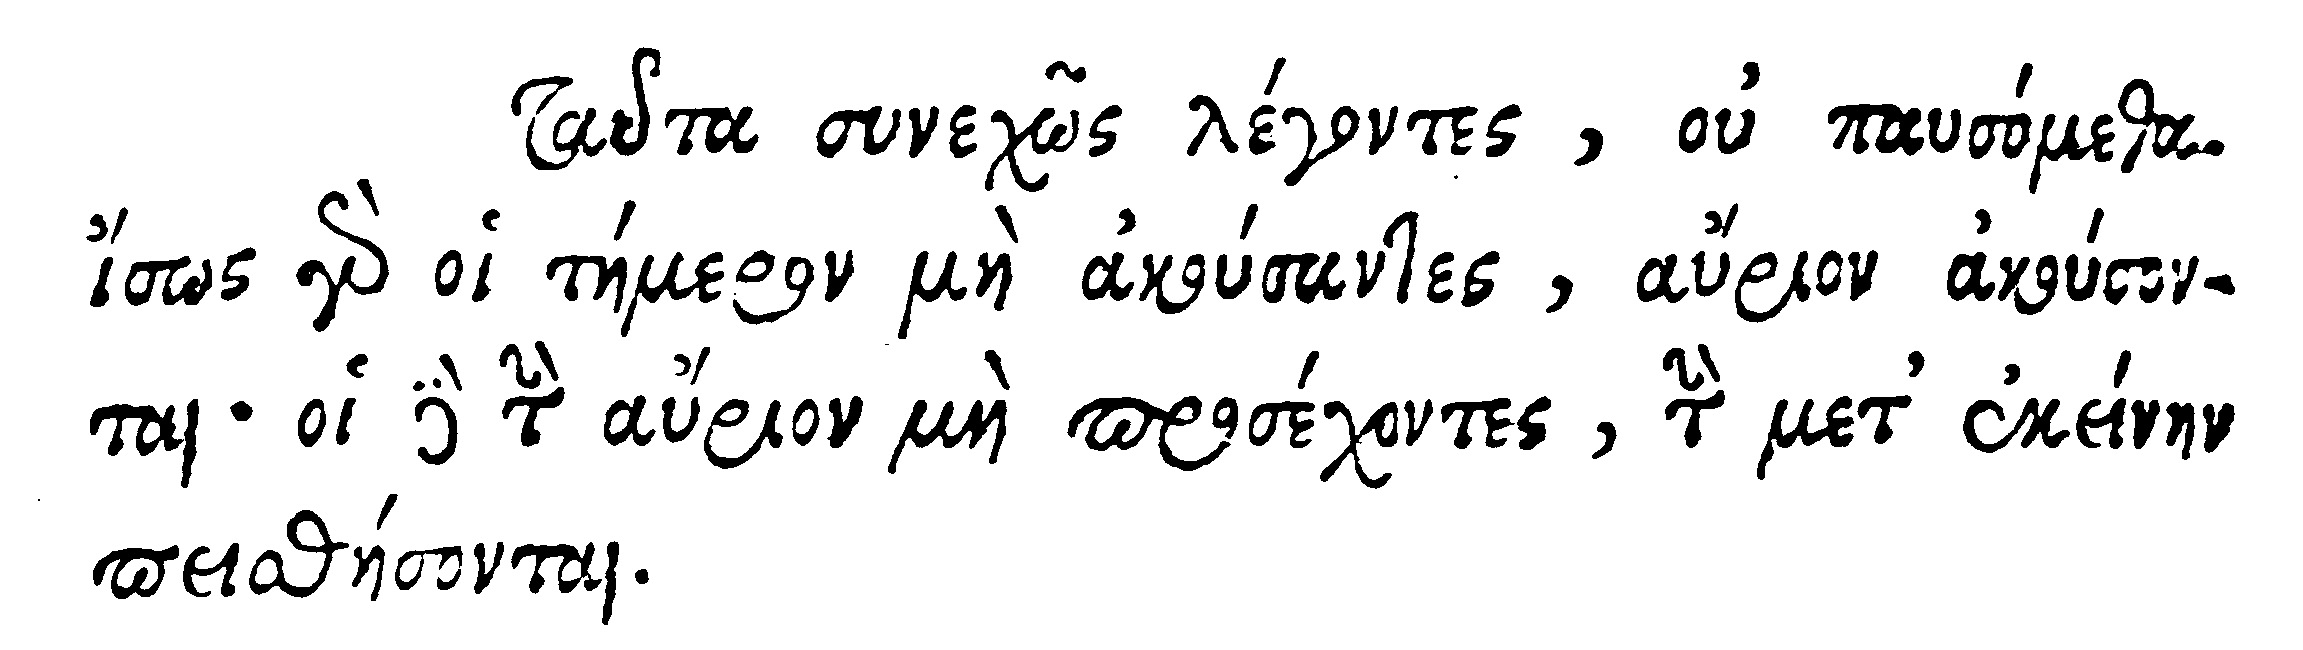 Ταῦτα συνεχῶς λέγοντες, οὐ παυσόμεθα.
ἴσως γὰρ οἱ τήμερον μὴ ἀκούσαντες, αὔριον ἀκούσον-
ται· οἱ δὲ τὴν αὔριον μὴ προσέχοντες, τὴν μετ' ἐκείνην
πεισθήσονται.